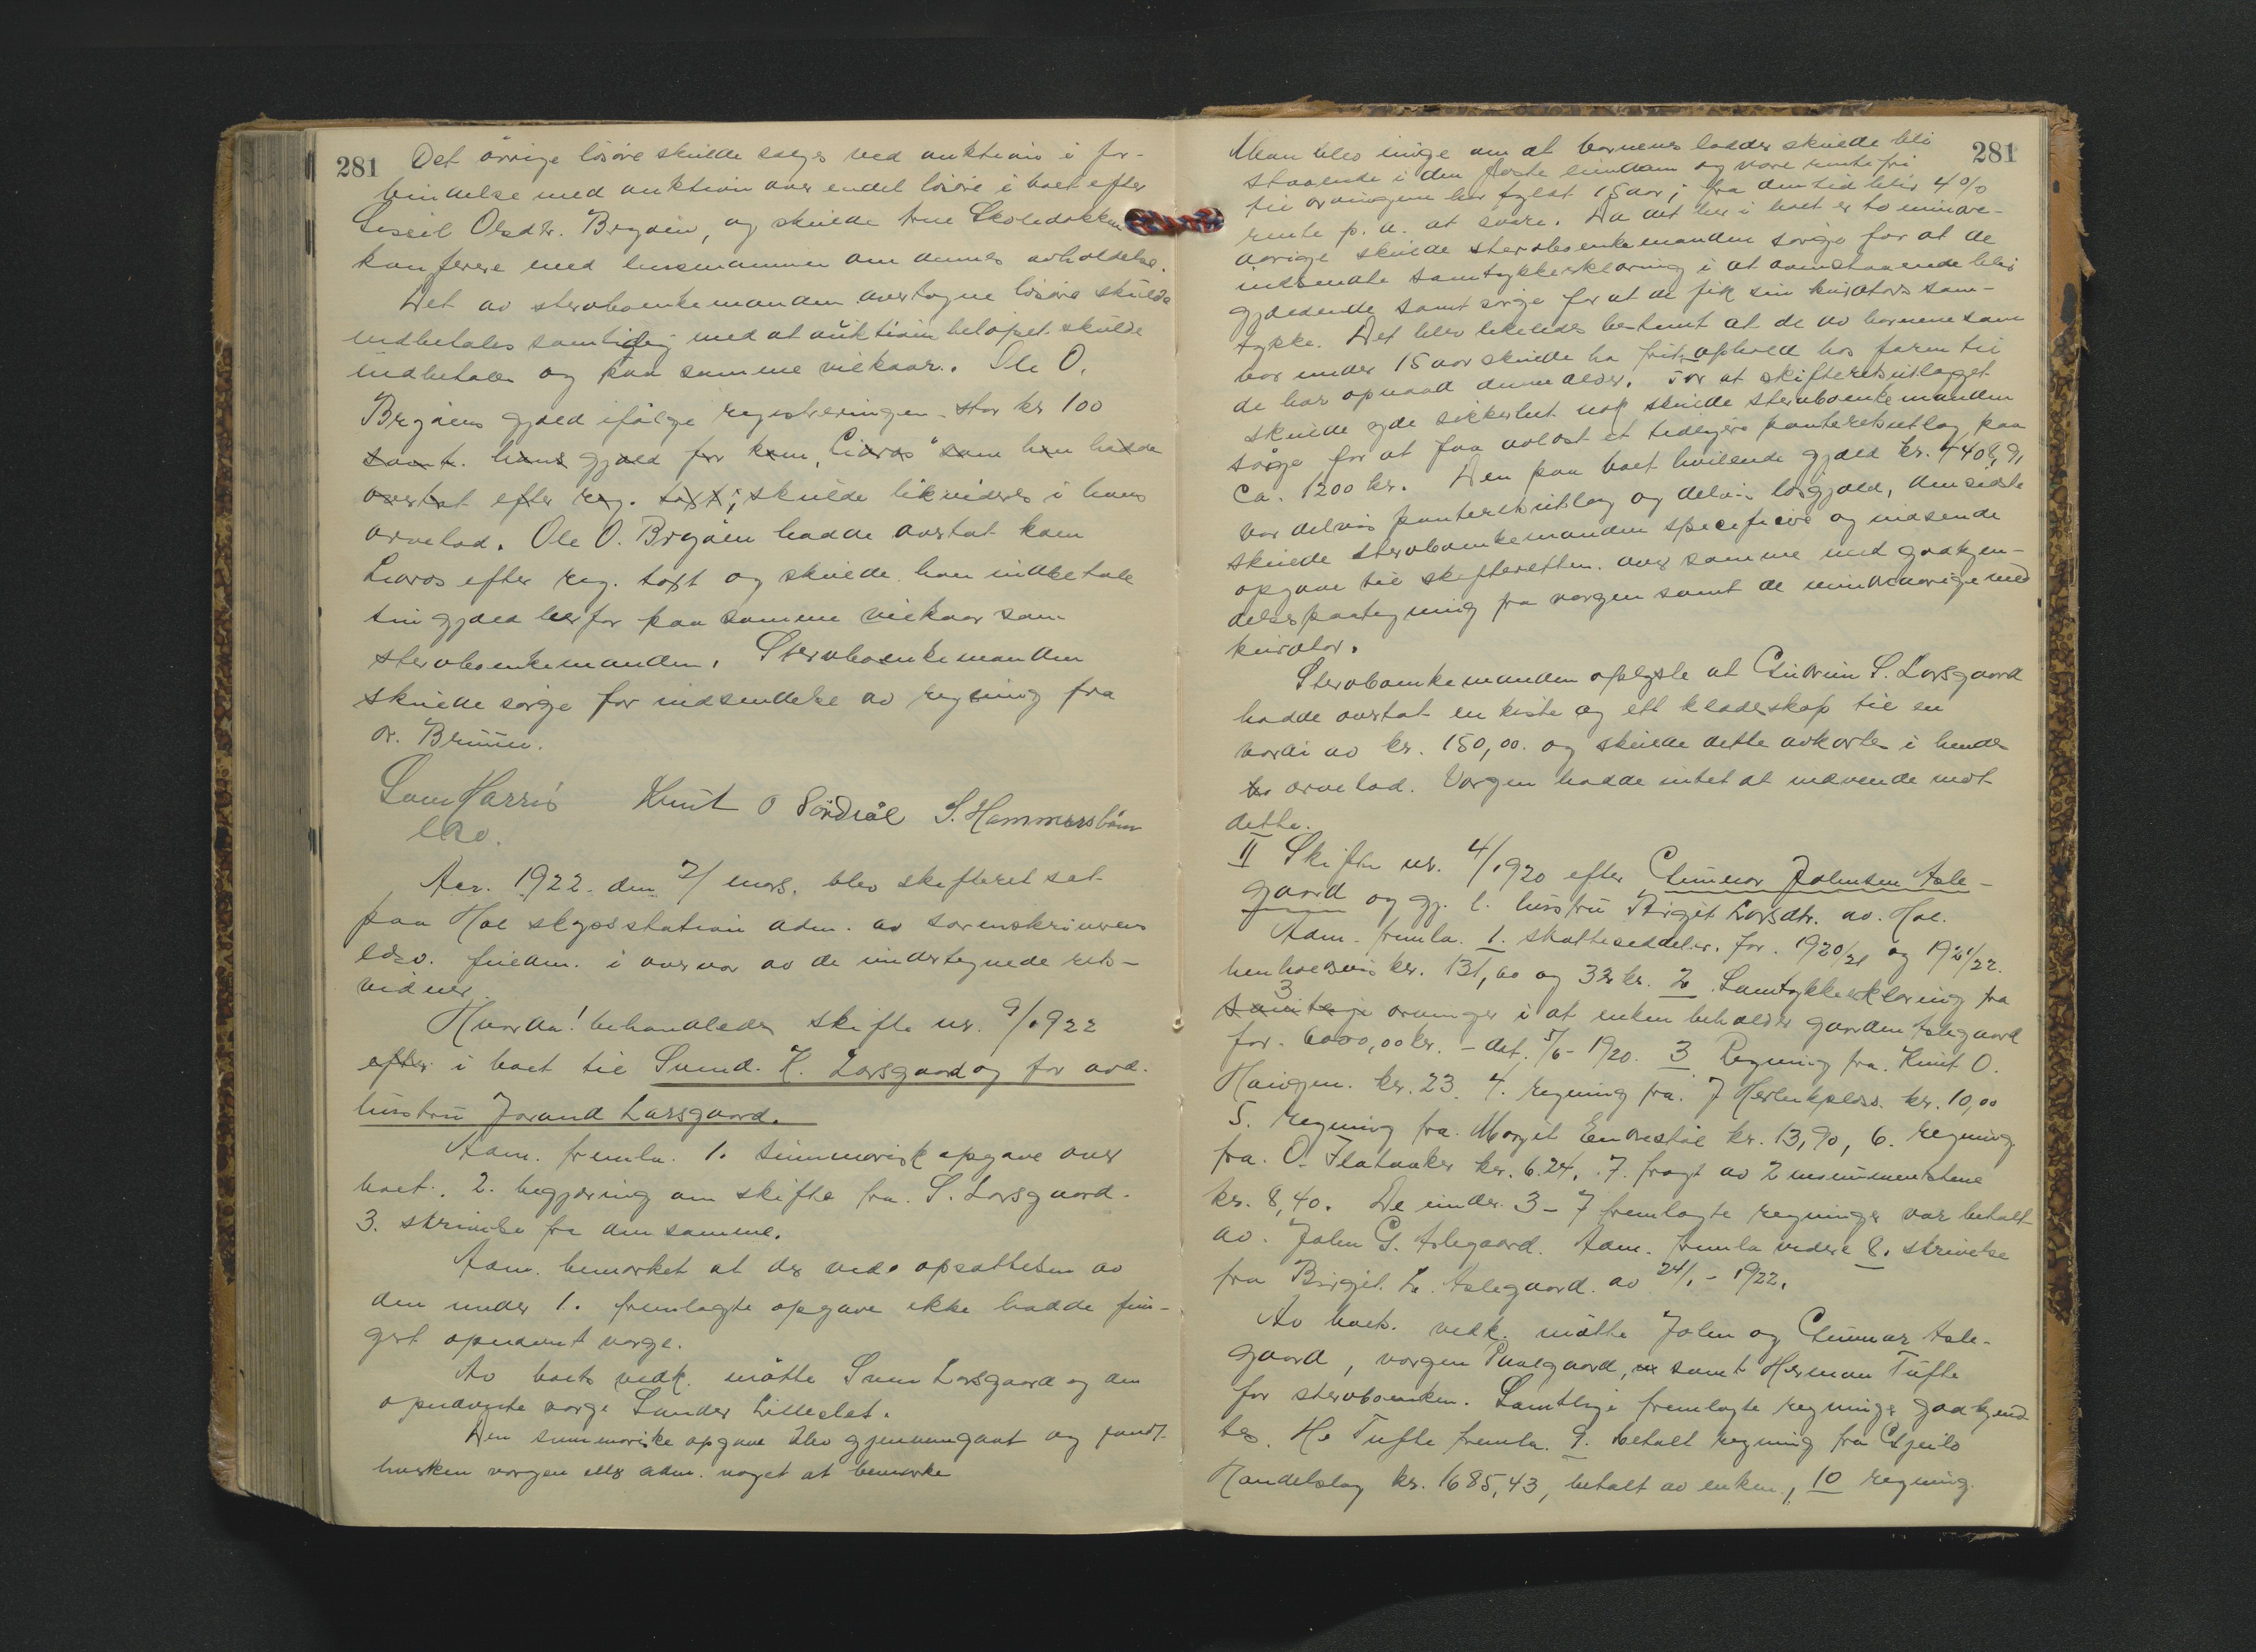 281
Det øvrige løsøre skulde selges ved auktion i for-
bindelse med auktion over endel løsøre i boet efter
Sissel Olsdtr. Brgøien, og skulde fru Skoledokken
konferere med lensmannen om dennes avholdelse.
Det av sterboenkemanden overtagne løsøre skulde
indbetales samtidig med at auktionsbeløpet skulde
indbetales og paa samme vilkaar. Ole O.
Brgøiens gjæld ifølge registreringen stor kr 100
samt hans gjæld for kam, Liaros" som han hadde
overtat efter reg. taxt; skulde likvideres i hans
arvelod. Ole O. Brgøien hadde overtat kam
Liaros efter reg. taxt og skulde han indbetale
sin gjæld herfor paa samme vilkaar som
sterboenkemanden. Sterboenkemanden
skulde sørge for indsendelse av regning fra
dr. Bruun.
Sam Harris Knut O Sørdiøl S. Hammersbøen
Aar. 1922. den 7/ mars. blev skifteret sat
paa Hol skysstation adm. av sorenskriveren
edsv. fuldm. i overvær av de undertegnede rets-
vidner.
Hvorda! behandledes skifte nr. 9/1922
efter i boet til Svend. K. Larsgaard og for avd.
hustru Jorand Larsgaard.
Adm. fremla. 1. summarisk opgave over
boet. 2. begjæring om skifte fra. S. Larsgaard.
3. skrivelse fra den samme.
Adm. bemerket at der ved opsættelsen av
den under 1. fremlagte opgave ikke hadde fun-
gert opnævnt verge.
Av boets vedk. møtte Svend Larsgaard og den
opnævnte verge Sander Lilleslet.
Den summariske opgave blev gjennemgaat og fandt
hverken vergen eller adm. noget at bemerke
281
Man blev enige om at barnenes lodder skulde bli
staaende i den faste eiendom og være rentefri
til arvingene har fylst 15 aar; fra den tid blir 4%
rente p. a. at svare. Da det her i boet er to mindre-
aarige skulde sterboenkemanden sørge for at de
indsendte samtykkeerklæring i at ovenstaaende blev
gjældende samt sørge for at de fik sin kurators sam-
tykke. Det blev likeledes bestemt at de av barnene som
var under 15 aar skulde ha frit ophold hos faren til
de har opnaad denne alder. For at skifteretsutlægget
skulde yde sikkerhet nok skulde sterboenkemanden
sørge for at faa avløst et tidligere panteretsutlæg paa
ca. 1200 kr. Den paa boet hvilende gjæld kr. 4408,9,
var delvis panteretsutlæg og delvis løsgjæld, den sidste
skulde sterboenkemanden specificere og indsende
opgave til skifteretten over samme med godkjen-
delsespaategning fra vergen samt de mindreaarige med
kurator.
Sterboenkemanden oplyste at Gudrun S. Larsgaard
hadde overtat en kiste og ett klædeskap til en
værdi av kr. 150,00 og skulde dette avkortes i hendes
arvelod. Vergen hadde intet at indvende mot
dette.
II Skifte nr. 4/1920 efter Gunnar Johnsen Asle-
gaard og gj. l. hustru Birgit Larsdtr. av. Hol.
Adm. fremla. 1. skattesedler for 1920/21 og 1921/22.
henholdsvis kr. 131,60 og 32 kr. 2. Samtykkeerklæring fra
3
samtlige arvinger i at enken beholder gaarden Aslegaard
for 6000,00 kr. - dat. 5/6 - 1920. 3 Regning fra. Knut O.
Haugen. kr. 23. 4. regning fra. J Herleikplass. kr. 10,00
5. regning fra. Margit Endrestøl kr. 13,90, 6. regning
fra. O. Flataaker kr. 6.24, 7. fragt av 2 monumentstene
kr. 8,40. De under 3 - 7 fremlagte regninger var betalt
av. John G. Aslegaard. Adm. fremla videre 8. skrivelse
fra Birgit L. Aslegaard. av 24/1 - 1922.
Av boets. vedk. møtte John og Gunnar Asle-
gaard, vergen Paalgaard, samt Herman Tufte
for sterboenken. Samtlige fremlagte regninger godkjend-
tes. H. Tufte fremla. 9. betalt regning fra Gjeilo
Handelslag kr. 1685,43, betalt av enken, 10 regning